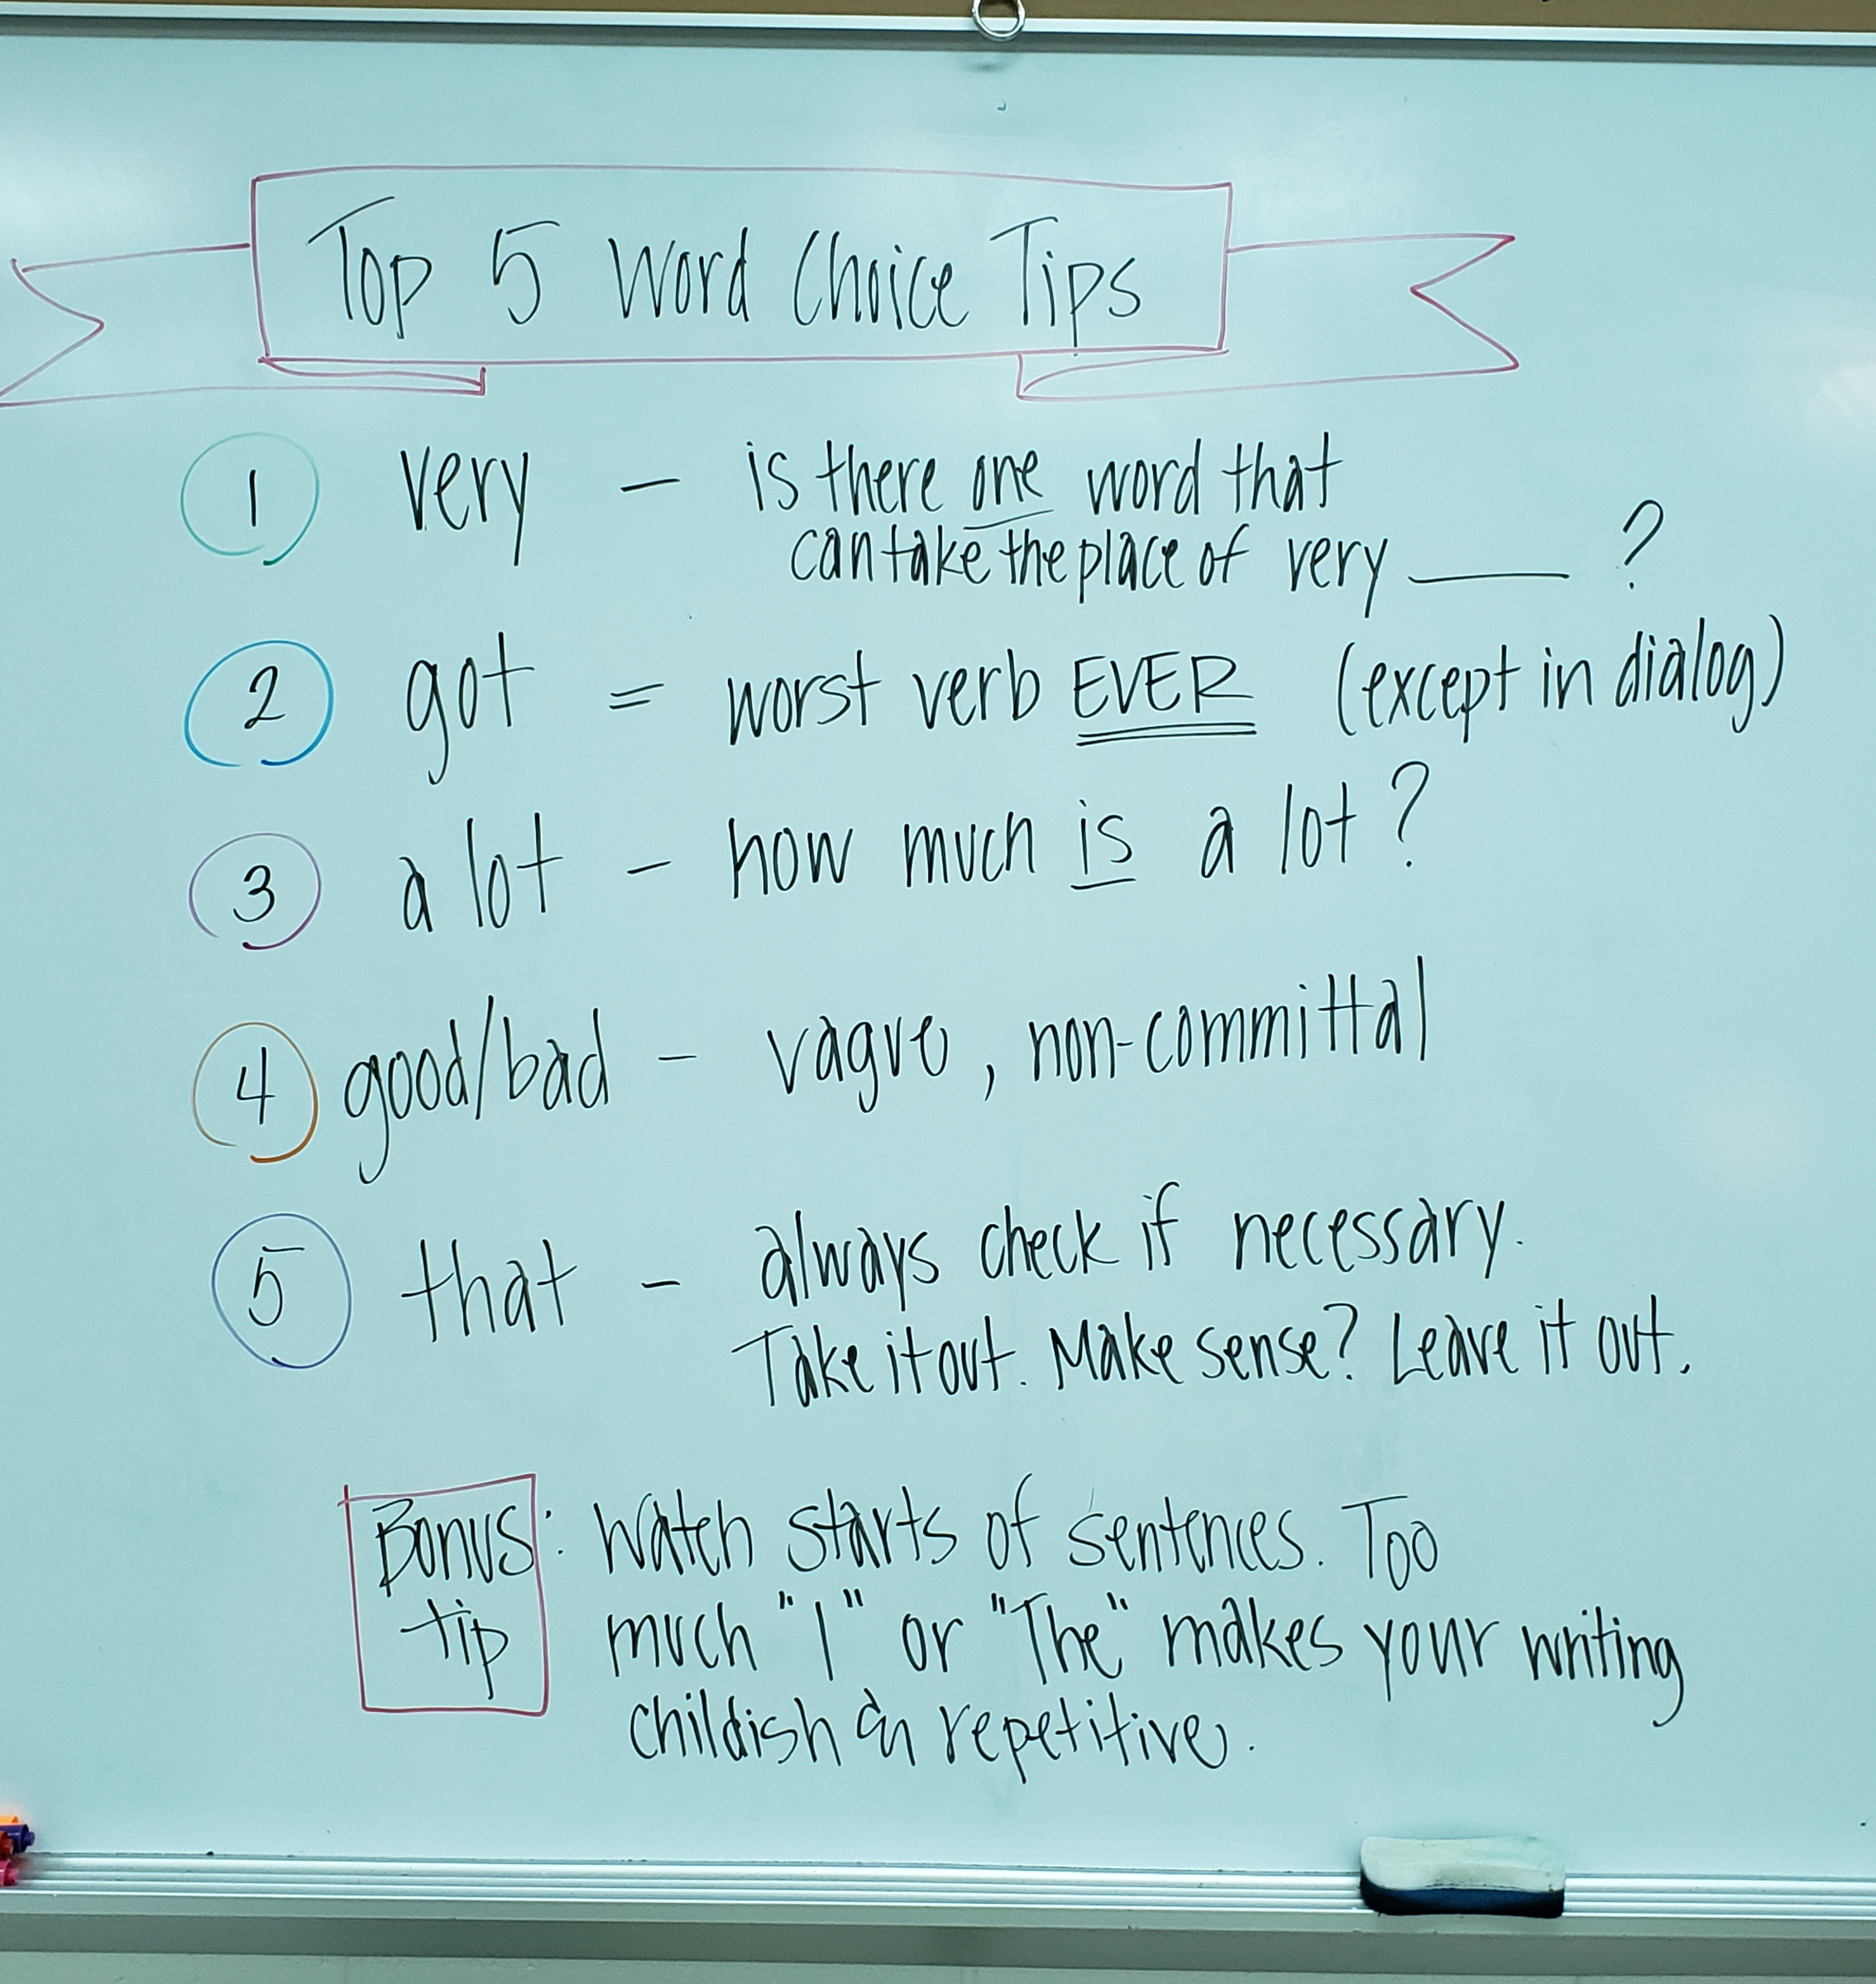 Top 5 Word Choice Tips
1 very - is there one word that
can take the place of very ____ ?
2 got = worst verb EVER (except in dialog)
3 a lot - how much is a lot?
4 good/bad - vague, non-committal
5 that - always check if necessary.
Take it out. Make sense? Leave it out.
Bonus: Watch starts of sentences. Too
tip much "I" or "The" makes your writing
childish & repetitive.